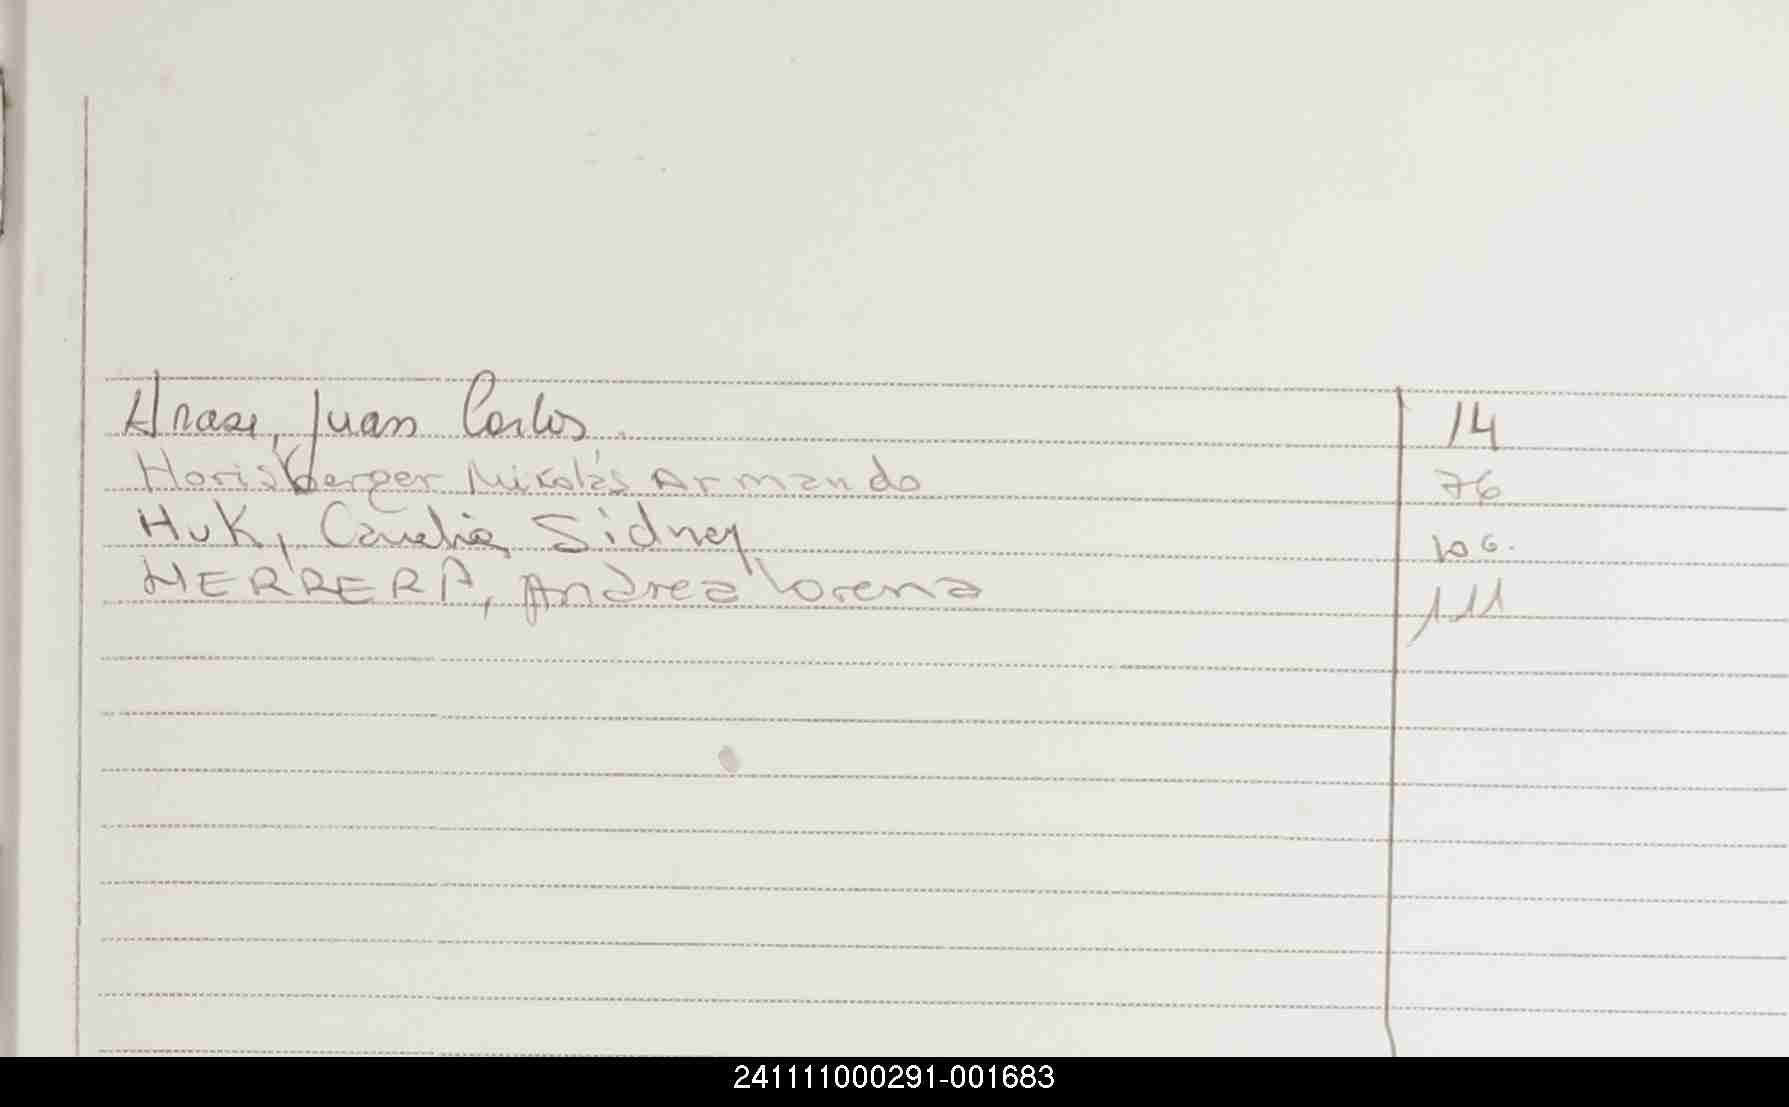 Juan Carlos. 14
Horisberger Nikolás Armando 76
Huk, Sidney 106.
HERRERA, Andrea Lorena 111
241111000291-001683